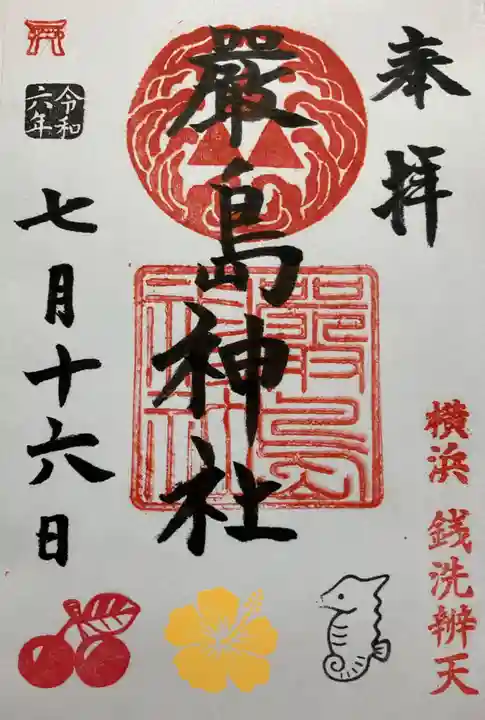 奉拝
横浜 銭洗辨天
嚴島神社
嚴島神社
令和六年
七月十六日